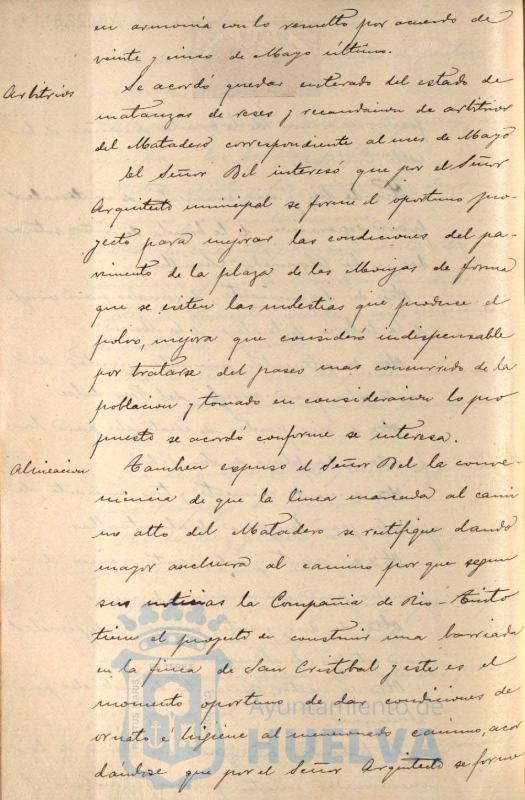 en armonía con lo resuelto por acuerdo de
veinte y cinco de Mayo último.
Arbitrios
Se acordó quedar enterado del estado de
matanzas de reses y recaudacion de arbitrios
del Matadero correspondiente al mes de Mayo
El Señor Bel interesó que por el Señor
Arquitecto municipal se forme el oportuno pro
yecto para mejorar las condiciones del pa-
vimento de la plaza de las Monjas de forma
que se eviten las molestias que produce el
polvo, mejora que consideró indispensable
por tratarse del paseo mas concurrido de la
poblacion y tomado en consideracion lo pro
puesto se acordó conforme se interesa.
Alineacion
Tambien expuso el Señor Bel la conve-
niencia de que la linea marcada al cami
no alto del Matadero se rectifique dando
mayor anchura al camino por que segun
sus noticias la Compañia de Rio-Tinto
tiene el proyecto de construir una barriada
en la finca de San Cristobal y este es el
momento oportuno de dar condiciones de
ornato é higiene al mencionado camino, acor
dándose que por el Señor Arquitecto se forme
Ayuntamiento de
HUELVA